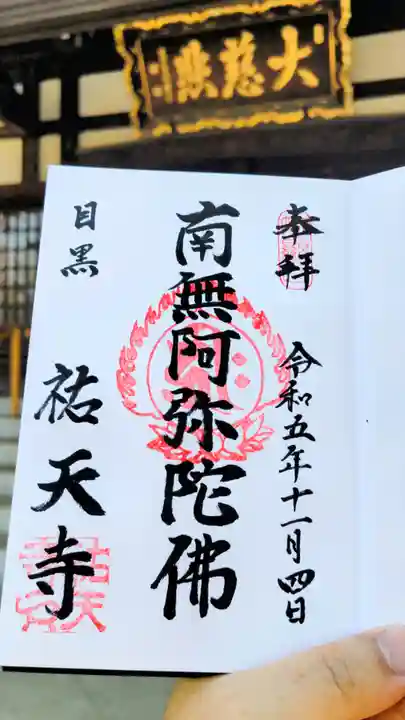 大慈悲
奉拝
令和五年十一月四日
南無阿弥陀佛
目黒
祐天寺